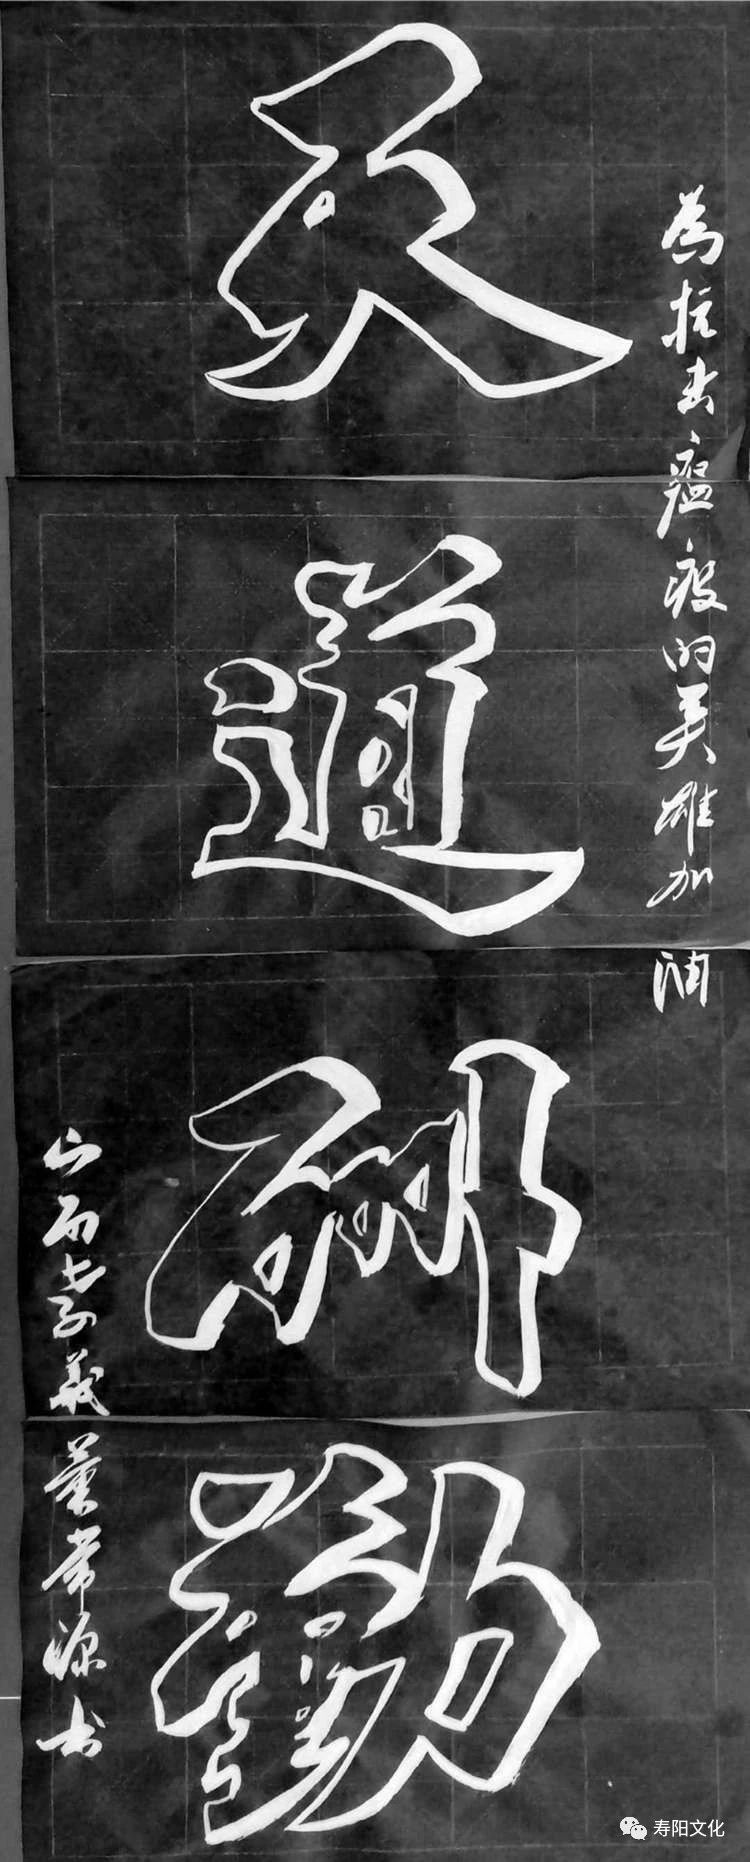 為抗击瘟疫的英雄加油
天道酬勤
山西孝義董常源书
寿阳文化